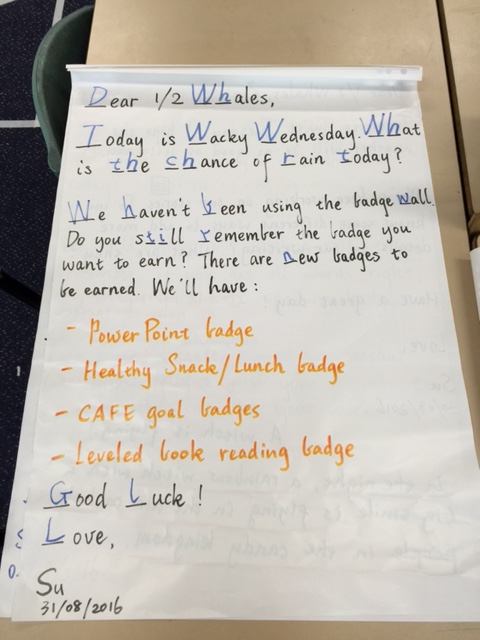 Dear 1/2 Whales,
Today is Wacky Wednesday. What
is the chance of rain today?
We haven't been using the badge wall.
Do you still remember the badge you
want to earn? There are new badges to
be earned. We'll have:
- PowerPoint badge
- Healthy Snack/Lunch badge
- CAFE goal badges
- Leveled book reading badge
Good Luck!
Love,
Su
31/08/2016